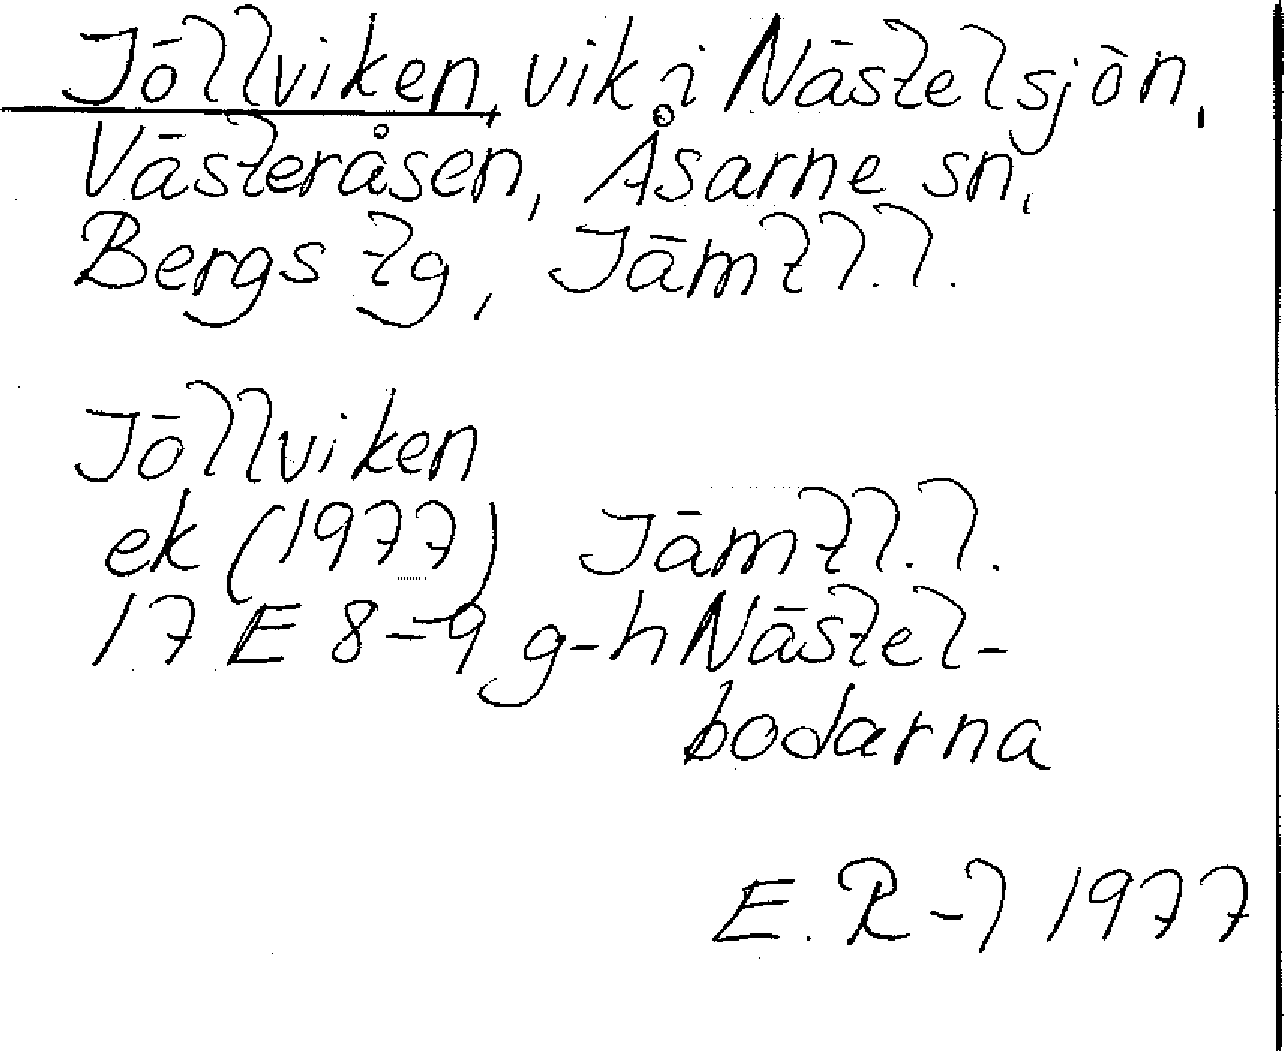 Jöllviken, vik i Nästelsjön,
Västeråsen, Åsarne sn,
Bergs tg, Jämtl. l.
Jöllviken
ek (1977) Jämtl. l.
17 E 8-9 g-h Nästel-
bodarna
E. R-l 1977